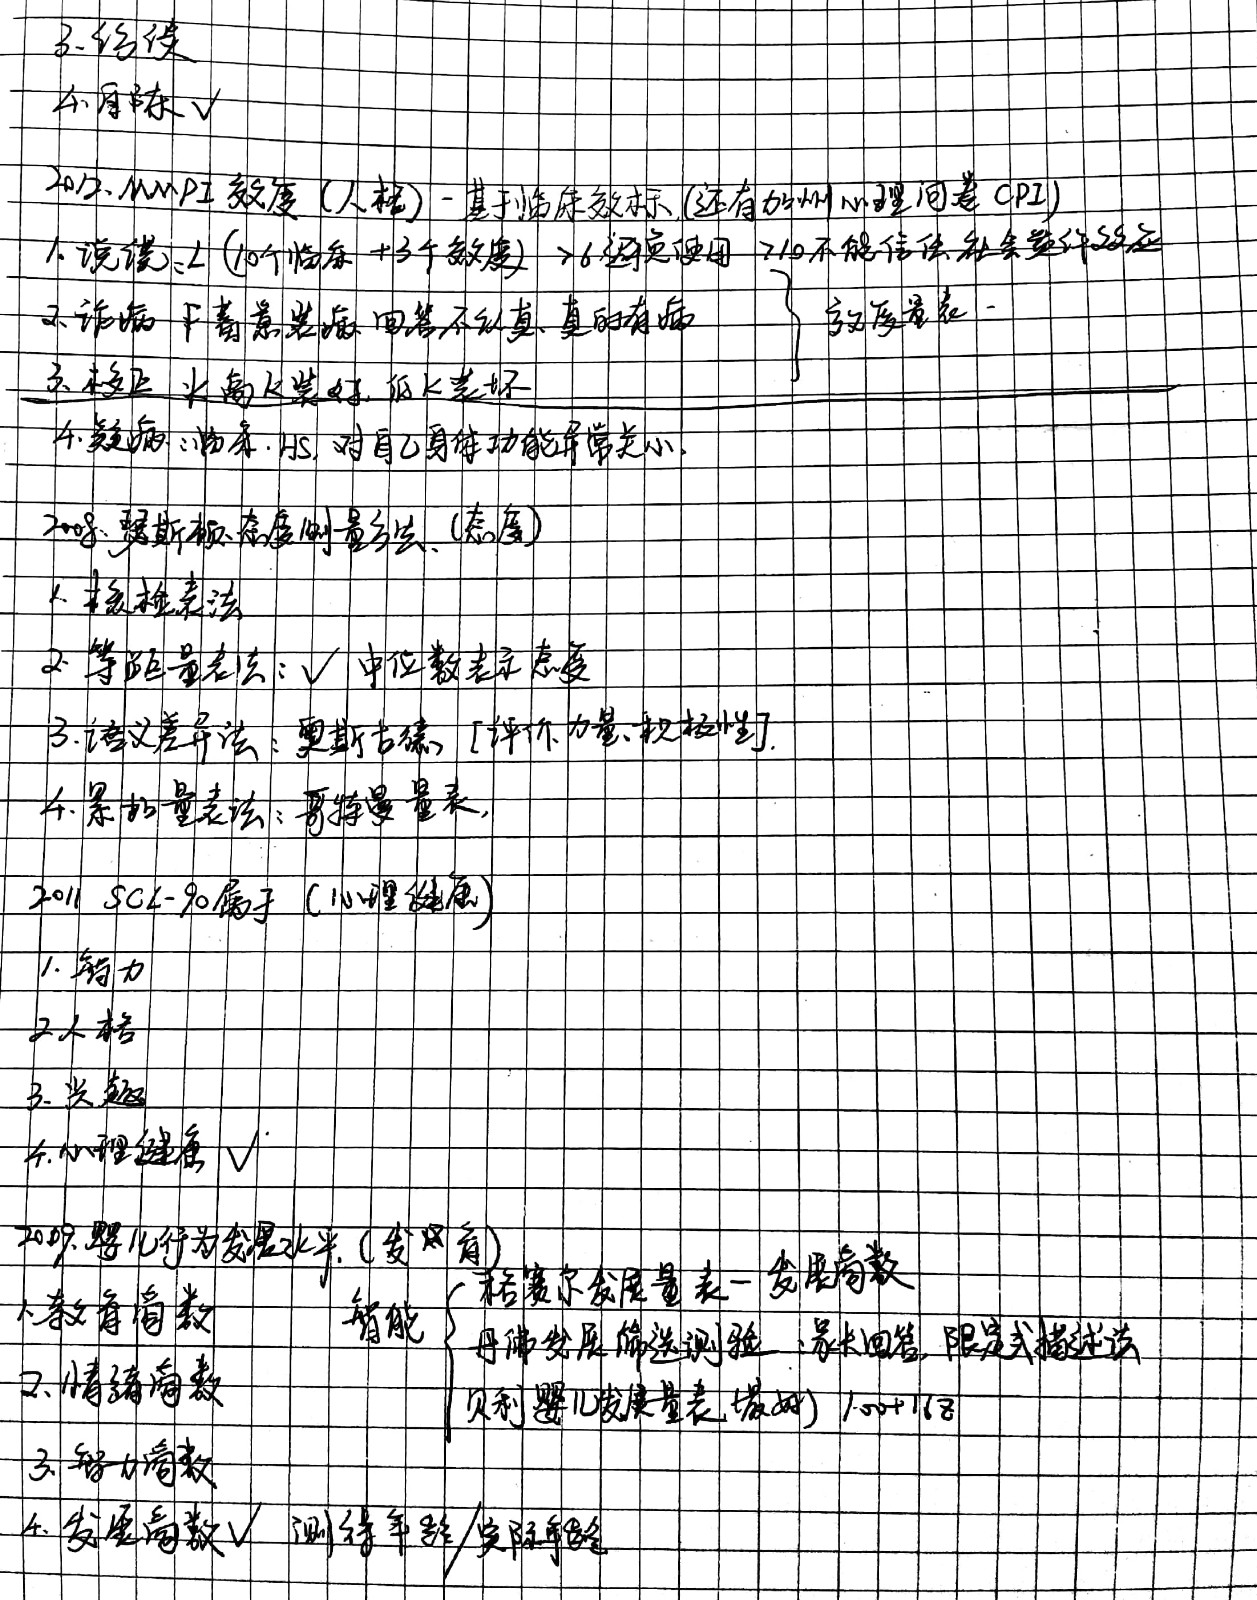 3.
4. 盾陈 ✓
2012. MMPI 效度 (人格) - 基于临床效标 (还有加州心理问卷 CPI)
1. 说谎: L (10个临床 +3个效度) >6 使用 >10 不能信任 社会赞许效应
2. 诈病 F 装病 回答不认真、真的有病 } 效度量表
3. 校正 K 高K装好, 低K装坏
4. 疑病: 临床. HS, 对自己身体功能异常关心.
2008. 瑟斯顿态度测量方法. (态度)
1. 核检表法
2. 等距量表法: ✓ 中位数表示态度
3. 语义差异法: 奥斯古德, [评价、力量、积极性].
4. 累积量表法: 哥特曼量表,
2011 SCL-90属于 (心理健康)
1. 智力
2. 人格
3. 兴趣
4. 心理健康 ✓
2009. 婴儿行为发展水平. (发育)
格赛尔发展量表 — 发展商数
1. 教育商数 智能 {
丹佛发展筛选测验 : 家长回答, 限定式描述法
2. 情绪商数
贝利婴儿发展量表(最好) 100+16Z
3. 智力商数
4. 发展商数 ✓ 测得年龄/实际年龄